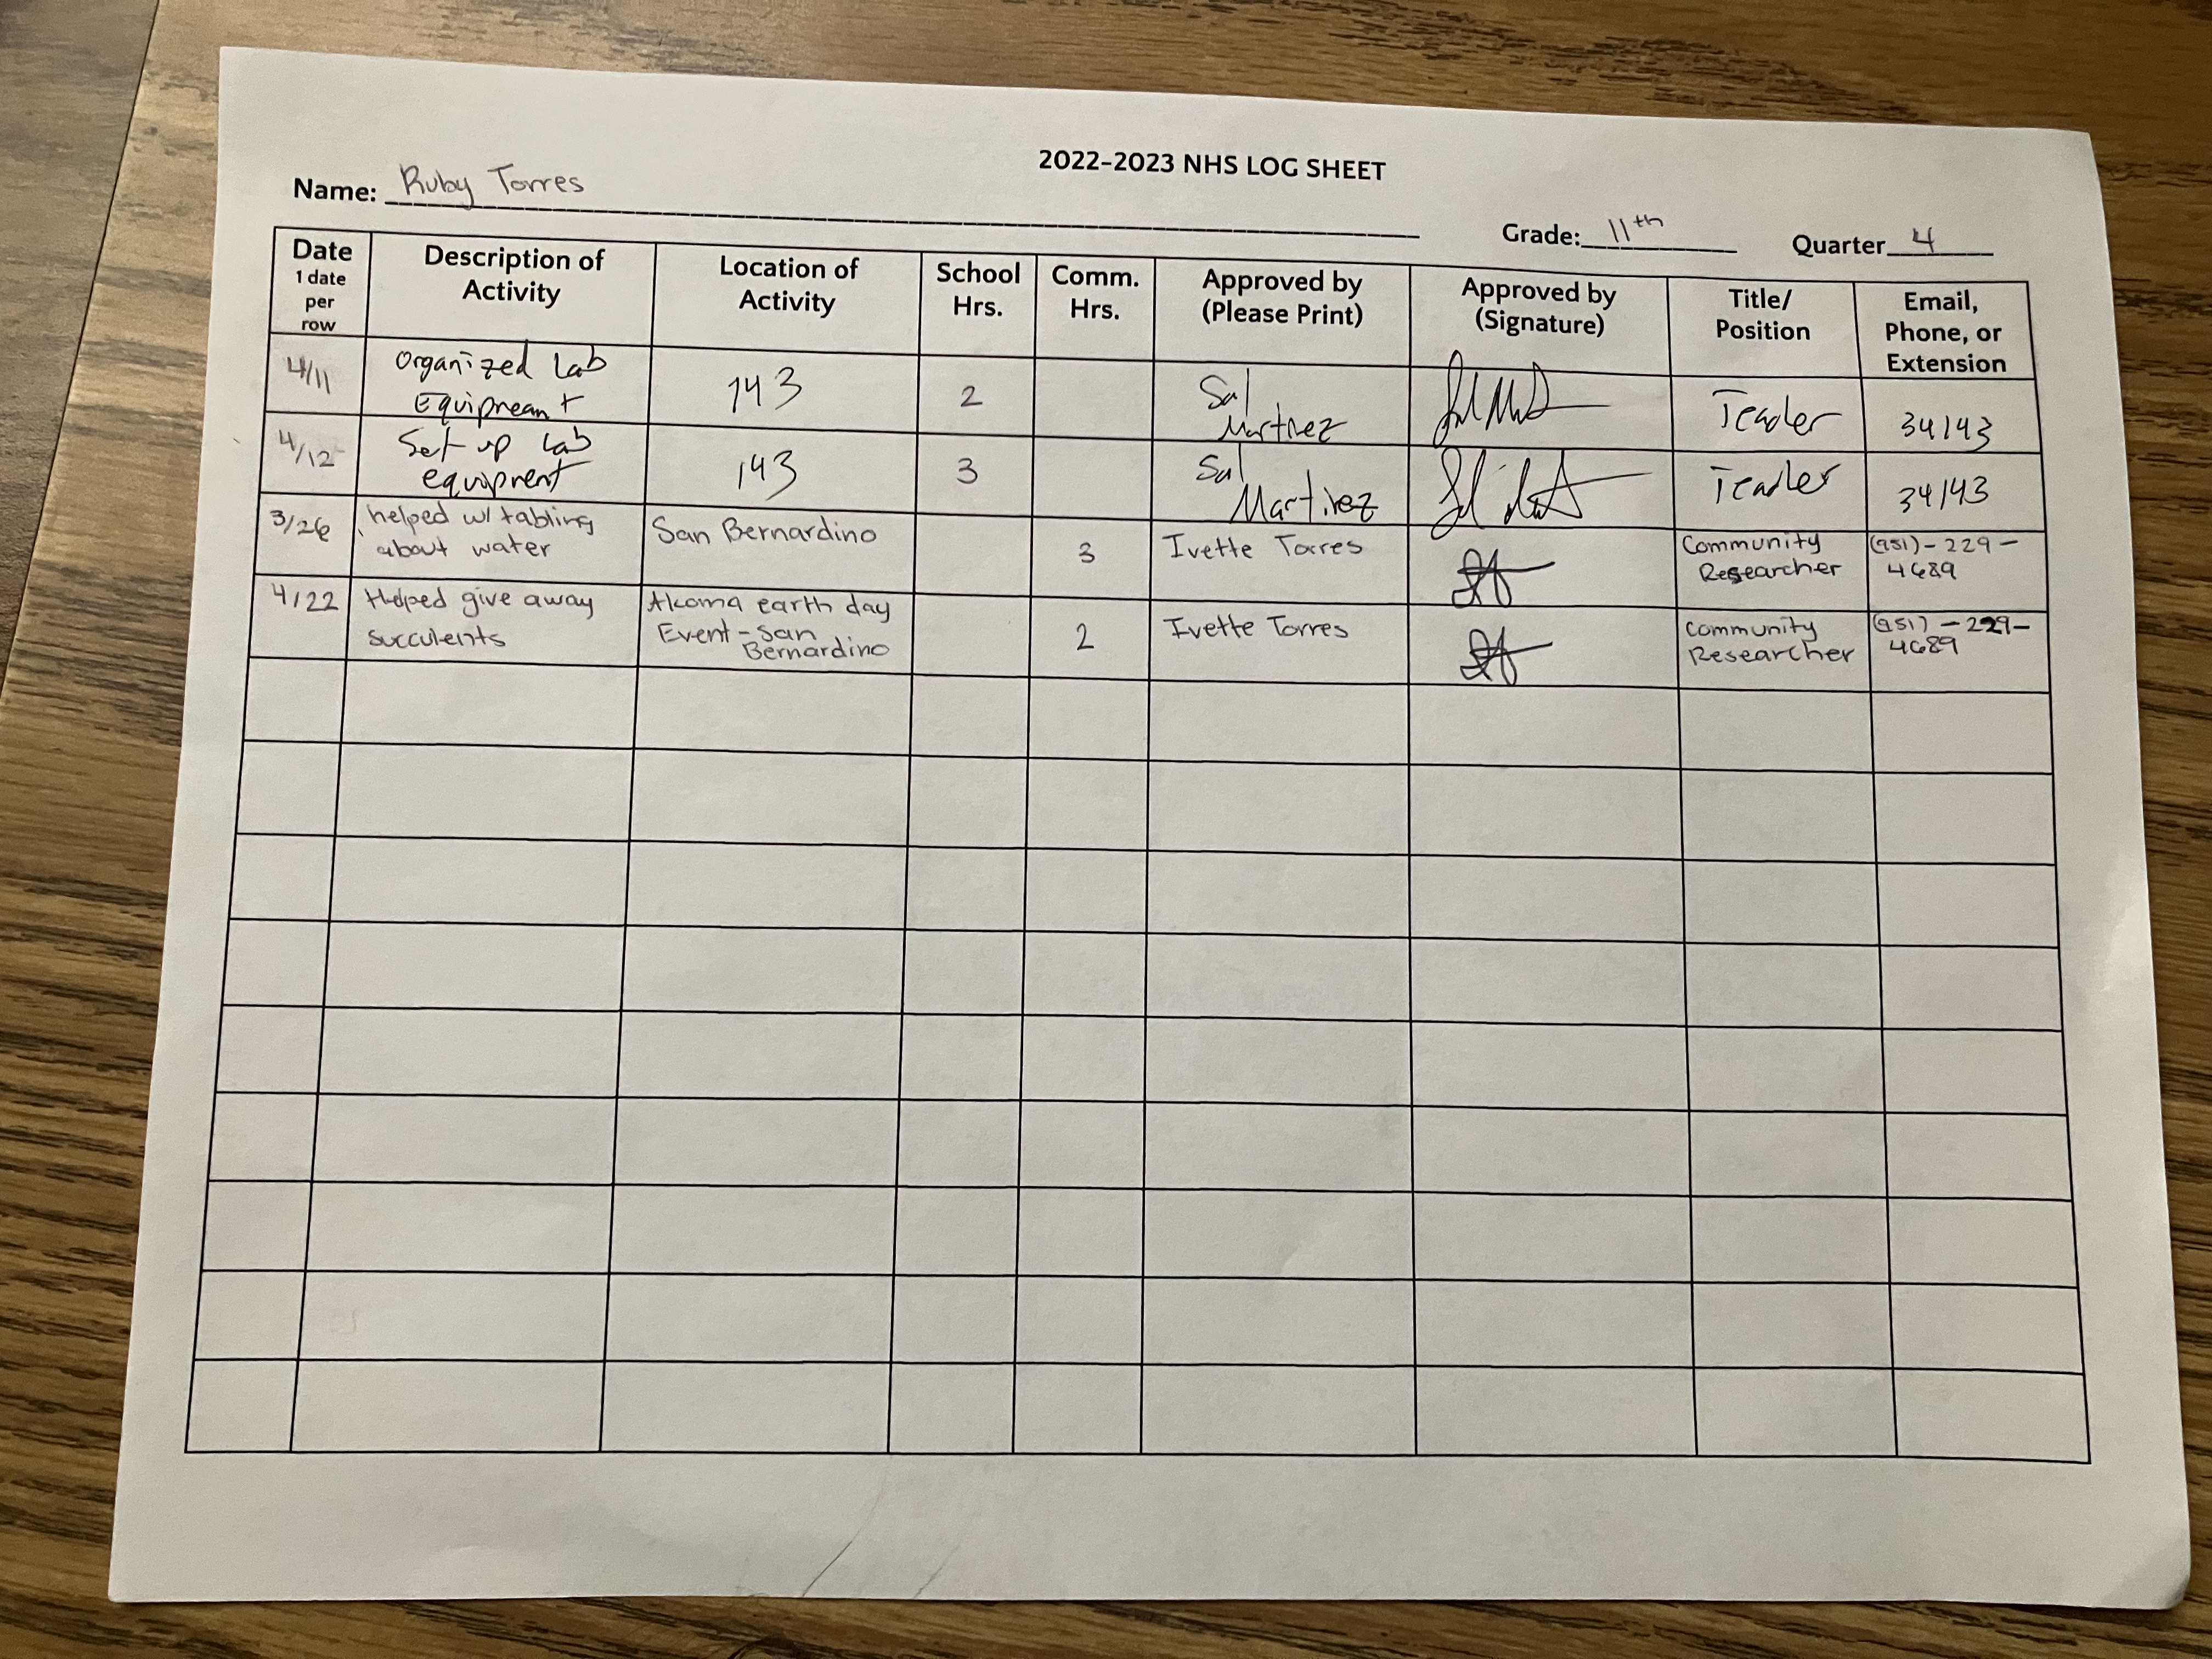 2022-2023 NHS LOG SHEET
Name: Ruby Torres Grade: 11th Quarter 4
Date
1 date
per
row
Description of
Activity
Location of
Activity
School
Hrs.
Comm.
Hrs.
Approved by
(Please Print)
Approved by
(Signature)
Title/
Position
Email,
Phone, or
Extension
4/11
Organized Lab
Equipmean t
143
2
Sal
Martinez
Teacher
34143
4/12
Set up Lab
equipment
143
3
Sal
Martinez
Teacher
34143
3/26
helped w/ tabling
about water
San Bernardino
3
Ivette Torres
Community
Researcher
(951)-229-
4689
4/22
Helped give away
succulents
earth day
Event - San
Bernardino
2
Ivette Torres
Community
Researcher
(951)-229-
4689